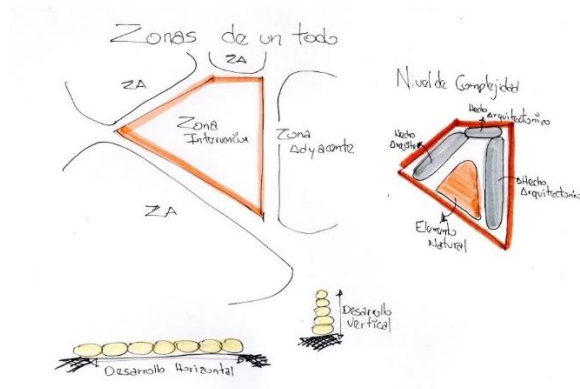 Zonas de un todo
ZA
ZA
Zona
Intervenir
Zona
Adyacente
ZA
Nivel de Complejidad
Hecho
Arquitectonico
Hecho
Hecho
Arquitectonico
Elemento
Natural
Desarrollo
Vertical
Desarrollo Horizontal